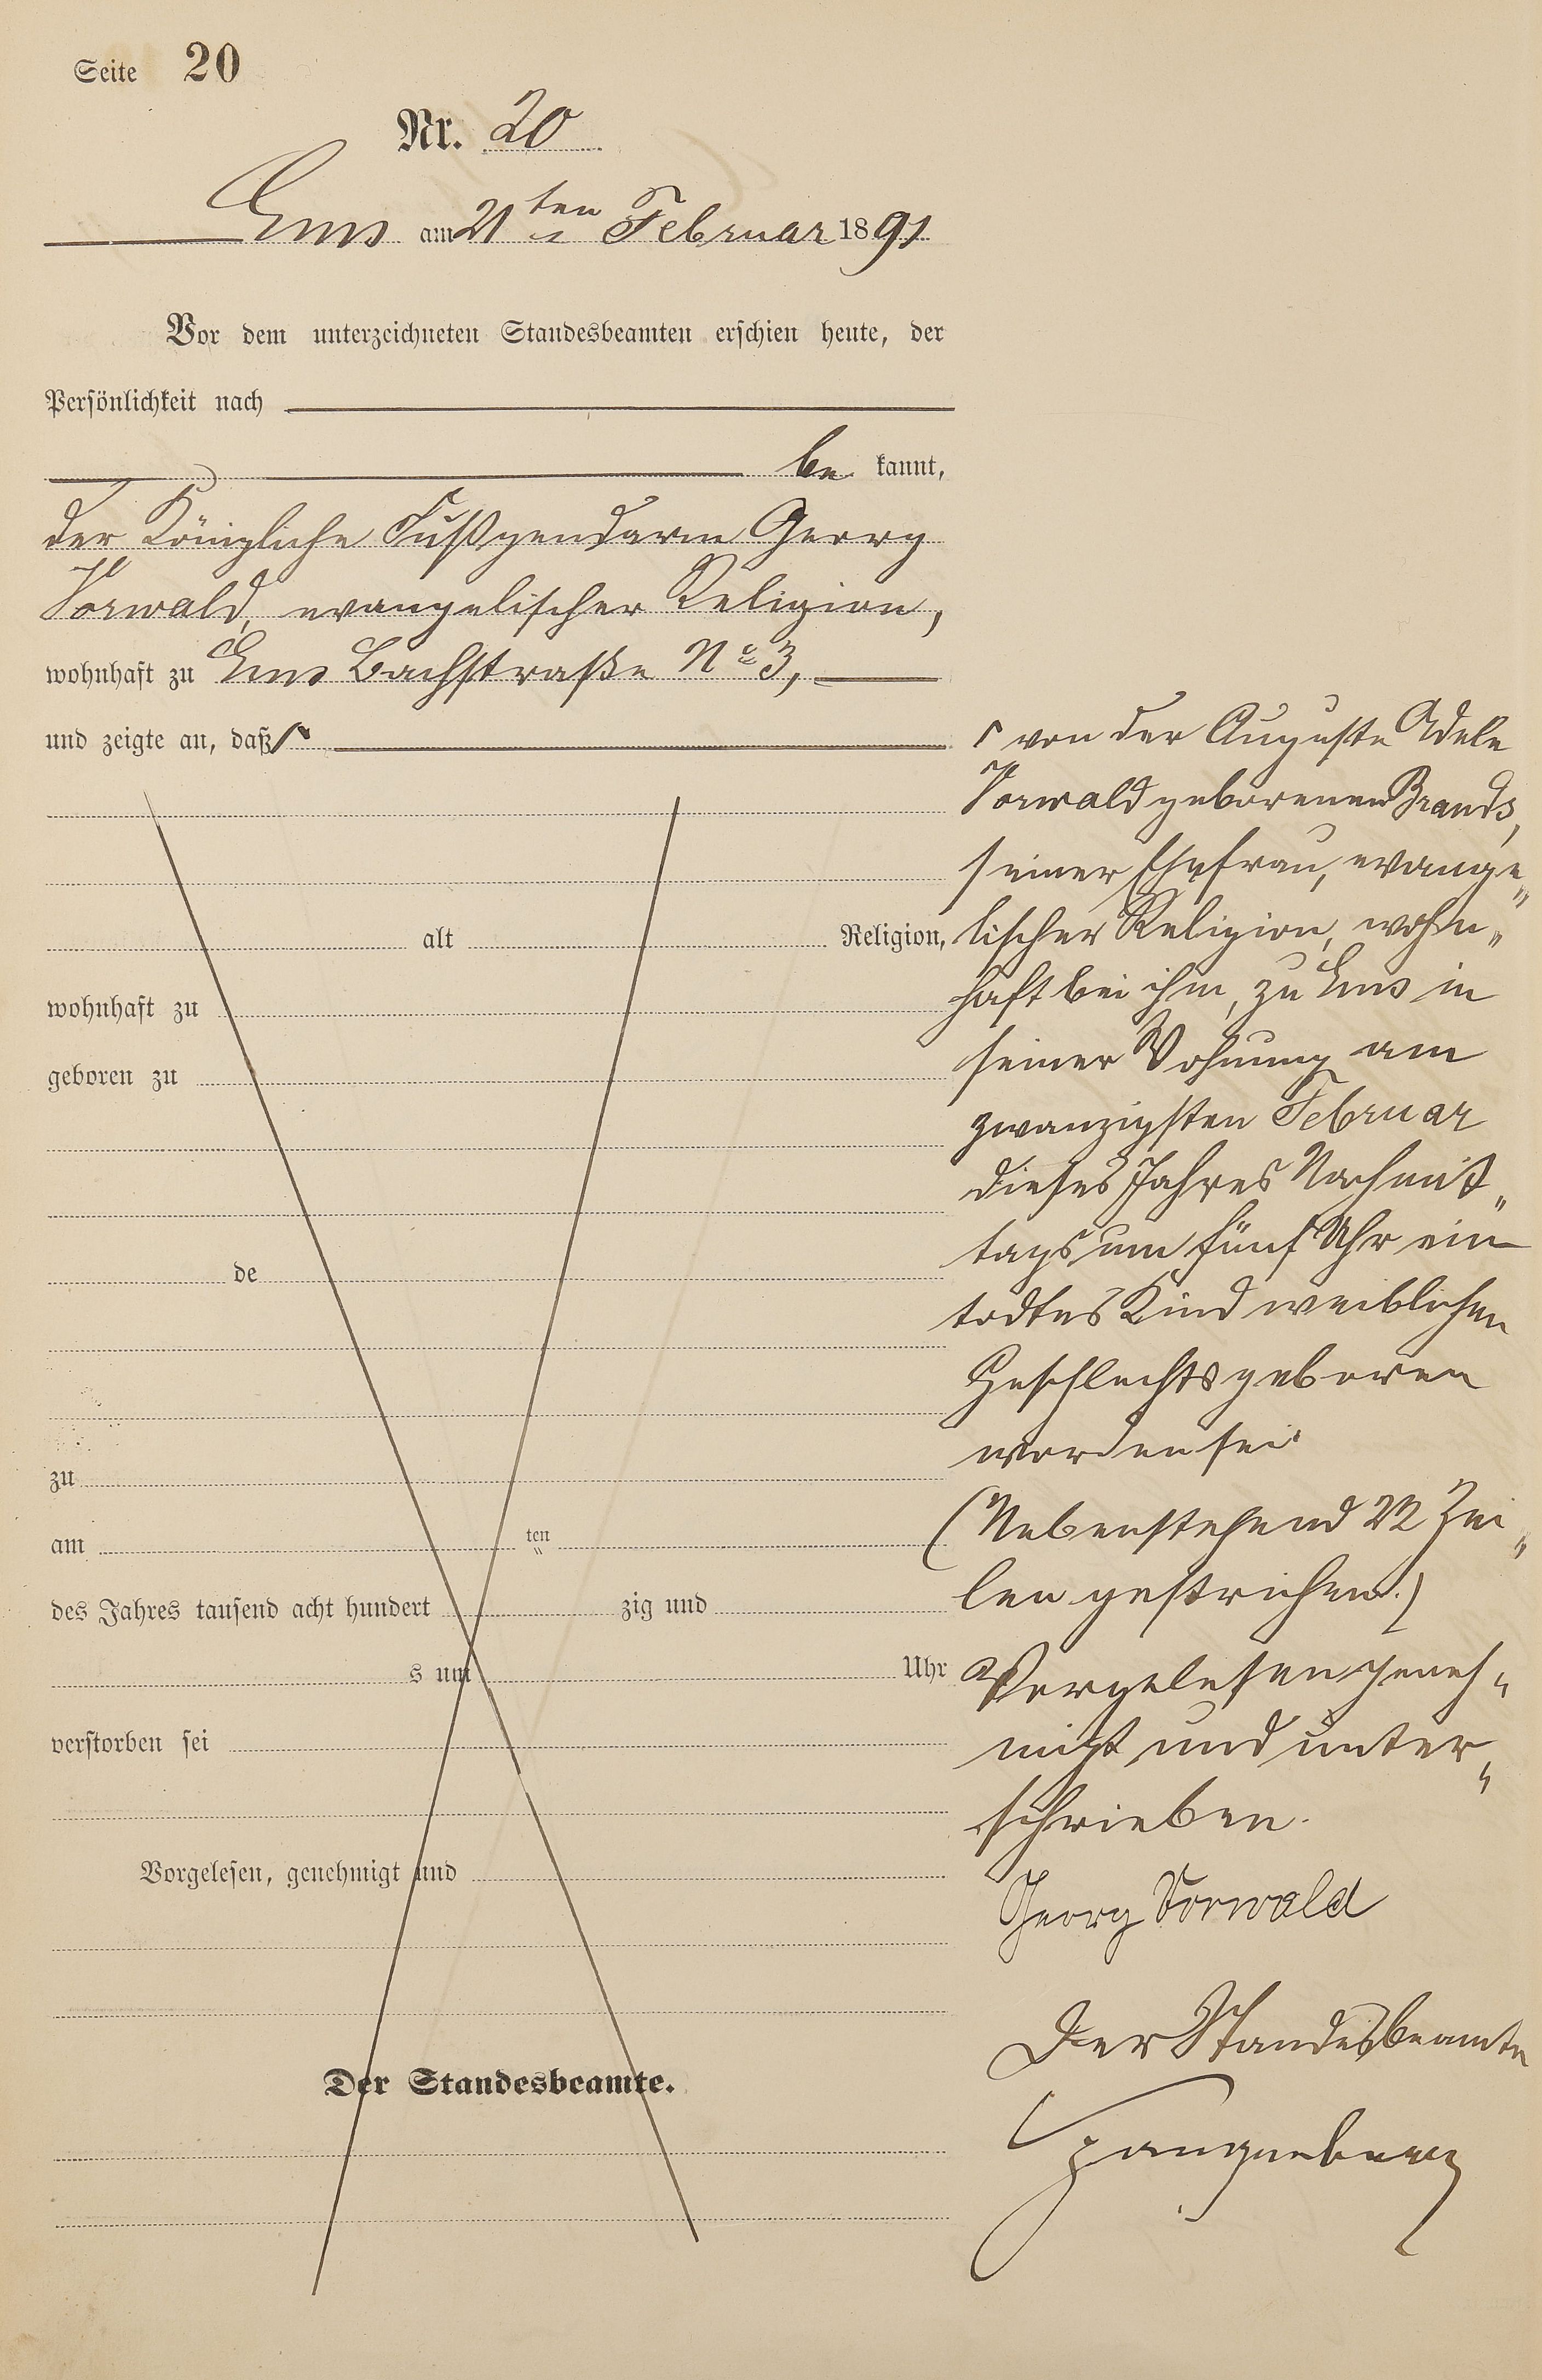 Seite 20
Nr. 20
Ems am 21 ten Februar 1891
Vor dem unterzeichneten Standesbeamten erschien heute, der
Persönlichkeit nach
be kannt,
der Königliche Fußgendarm Georg
Vorwald, evangelischer Religion,
wohnhaft zu Ems Bachstraße No 3,
und zeigte an, daß
von der Auguste Adele
Vorwald geborenen Brands,
seiner Ehefrau, evange„
alt Religion,
lischer Religion, wohn„
wohnhaft zu
haft bei ihm, zu Ems in
geboren zu
seiner Wohnung am
zwanzigsten Februar
dieses Jahres Nachmit„
tags um fünf Uhr ein
de
todtes Kind weiblichen
Geschlechts geboren
worden sei
zu
(Nebenstehend 22 Zei„
am ten
len gestrichen.)
des Jahres tausend acht hundert zig und
s um Uhr
Vorgelesen geneh„
verstorben sei
migt und unter„
schrieben.
Vorgelesen, genehmigt und
Georg Vorwald
Der Standesbeamte
Der Standesbeamte.